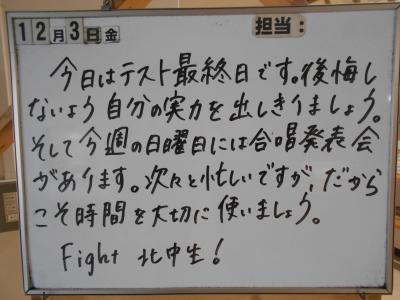 12月3日金 担当:
今日はテスト最終日です。後悔し
ないよう自分の実力を出しきりましょう。
そして今週の日曜日には合唱発表会
があります。次々と忙しいですが、だから
こそ時間を大切に使いましょう。
Fight 北中生!